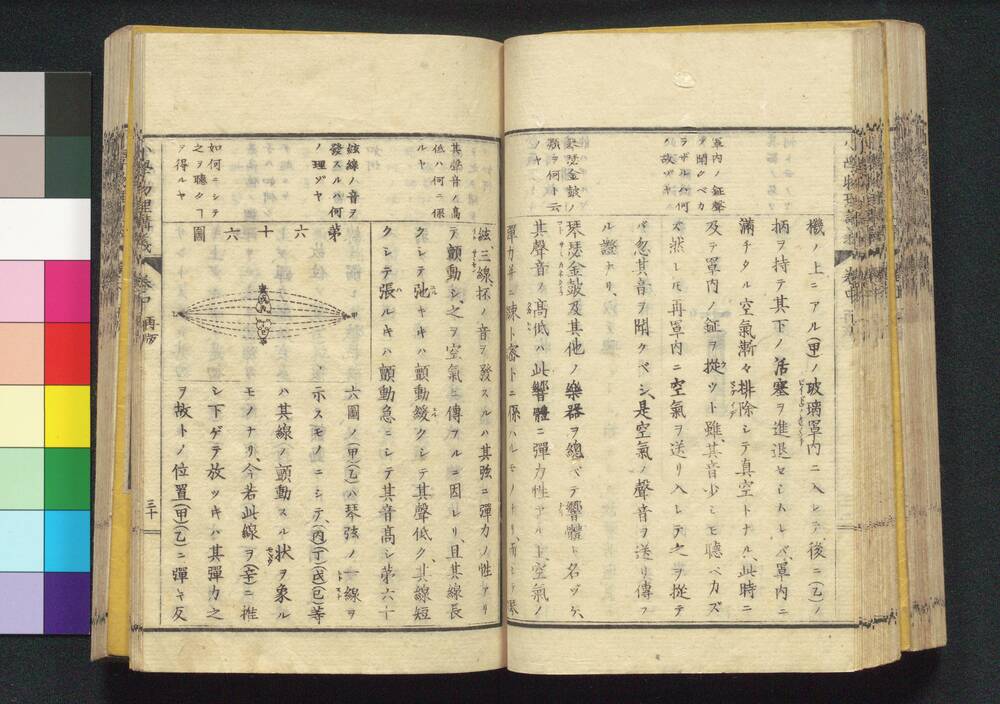 軍内ノ鉦聲
ヲ聞クベカ
ラザルハ何
ノ故ゾヤ
琴瑟金鼓ノ
類ヲ何ト云
フヤ
機ノ上ニアル(甲)ノ玻璃罩内ニ入レテ、後ニ(乙)ノ
柄ヲ持テ其下ノ活塞ヲ進退セシムレバ、罩内ニ
滿チタル空氣漸々排除シテ真空トナル、此時ニ
及テ罩内ノ鉦ヲ撞ツト雖、其音少シモ聴ベカラズ
然レモ再罩内ニ空氣ヲ送リ入レテ之ヲ撞テ
バ忽其音ヲ聞クベシ、是空氣ノ聲音ヲ送リ傳フ
ル證ナリ、
琴瑟金鼓及其他ノ樂器ヲ總ベテ響體ト名ヅケ、
其聲音ノ高低ハ此響體ニ彈力性アル上、空氣ノ
其聲音ノ高
低ハ何ニ係
ルヤ
絃線ノ音ヲ
發スルハ何
ノ理ゾヤ
如何ニシテ
之ヲ聴クヿ
ヲ得ルヤ
絃、三線、抔ノ音ヲ發スルハ其弦ニ彈力ノ性アリ
テ顫動シ、之ヲ空氣ニ傳フルニ因レリ、且其線長
クシテ弛ヤキハ顫動緩クシテ其聲低ク、其線短
クシテ張ルキハ顫動急ニシテ其音高シ第六十
第六十六圖
六圖ノ(甲)(乙)ハ琴弦ノ一線ヲ
示スモノニシテ、(丙)(丁)(戊)(己)等
ハ其線ノ顫動スル状ヲ象ル
モノナリ、今若此線ヲ(辛)ニ推
シ下ゲテ放ツキハ其彈力之
ヲ故トノ位置(甲)(乙)ニ彈キ反
小學物理講義 卷中 再版
三十